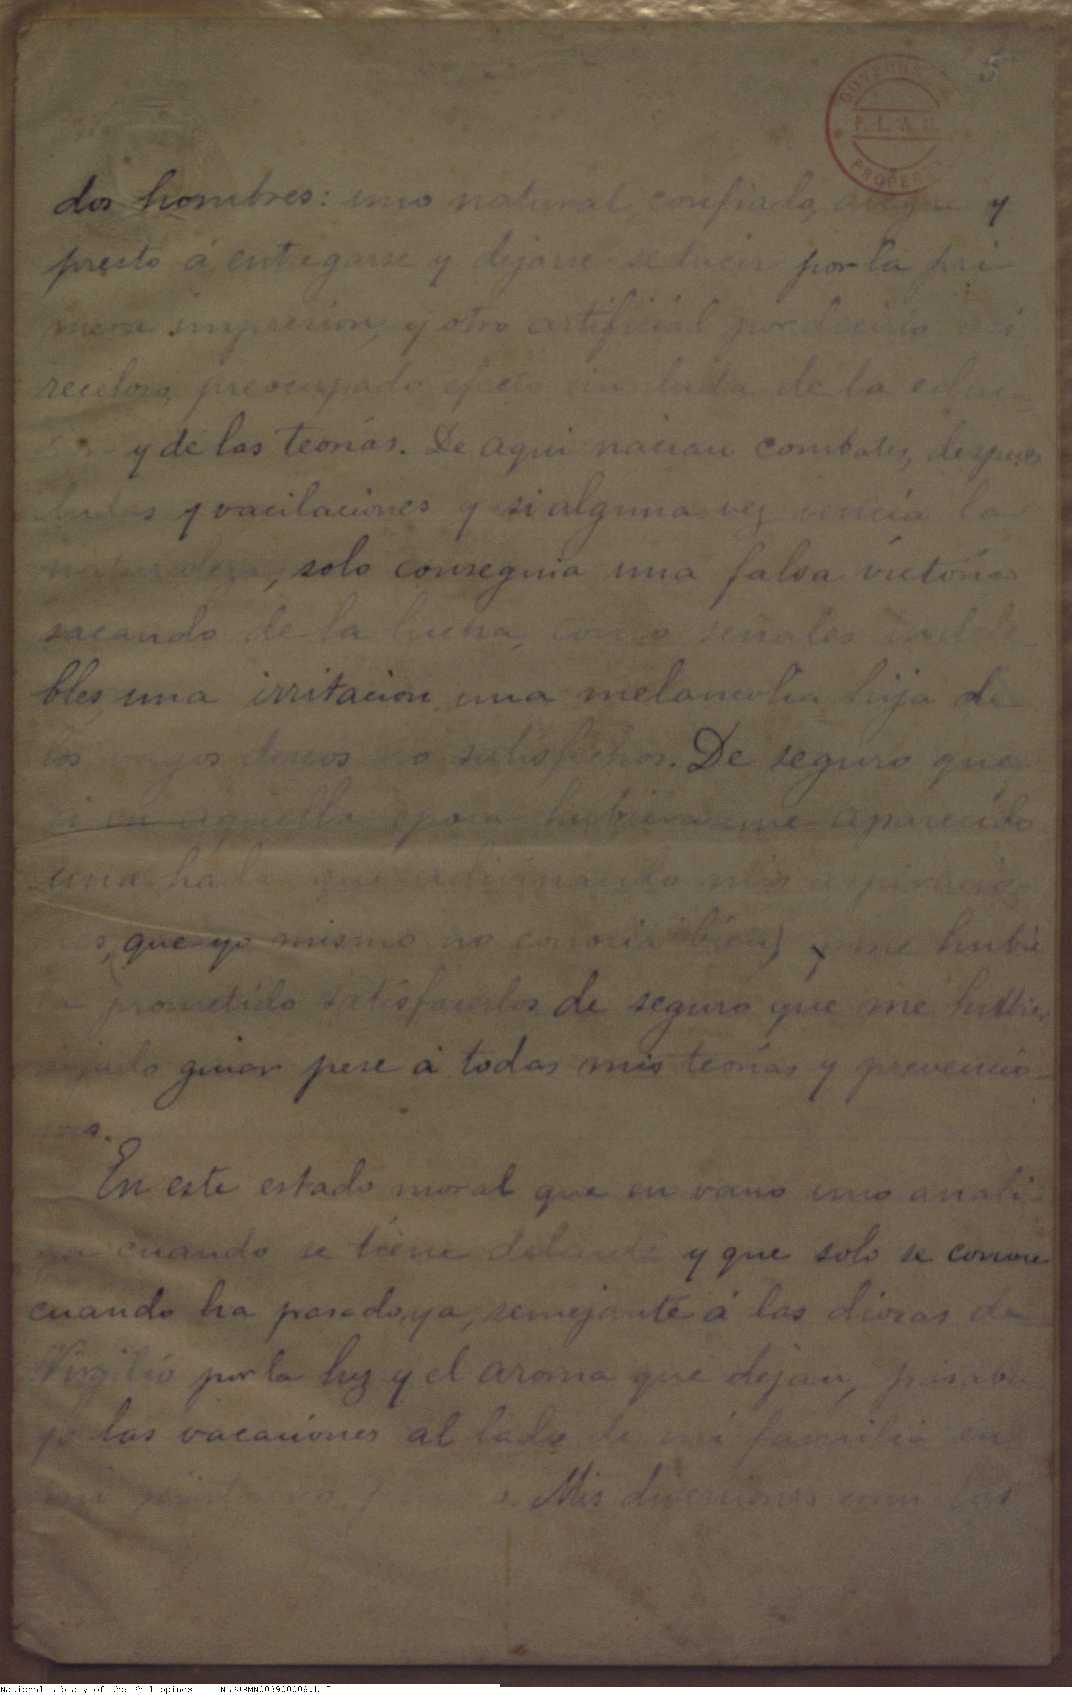 5
GOVERN
P. L. & M.
PROPER
dos hombres: uno natural, confiado, alegre y
presto á entegarse y dejarse seducir por la pri-
mera impresion, y otro artificial por decirlo así
receloso, preocupado efecto sin duda de la educ
y de las teorías. De aqui nacian combates, despues
dudas y vacilaciones y si alguna vez vencía la
naturaleza, solo conseguia una falsa victoria
sacando de la lucha, como señales indele
bles, una irritacion, una melancolia hija de
los vagos deseos no satisfechos. De seguro que
si en aquella epoca hubiéraseme aparecido
una hada que adivinando mis aspiracio
nes, que yo mismo no conocia bien) y me hubie
ra prometido satisfacerlos de seguro que me hubier
dejado guiar pese á todas mis teorías y prevencio-
nes.
En este estado moral que en vano uno anali-
za cuando se tiene delante y que solo se conoce
cuando ha pasado ya, semejante á las diosas de
Virgilio por la luz y el aroma que dejan, pasaba
yo las vacaciones al lado de mi familia en
mi Mis diversiones eran las
National Library of the Philippines